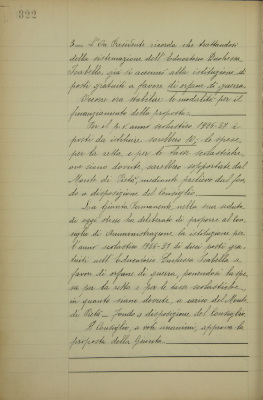 322
3 - Il Sig. Presidente ricorda che trattandosi
della sistemazione dell'Educatorio Duchessa
Isabella, qui si accennò alla istituzione di
posti gratuiti a favore di orfane di guerra.
Occorre ora stabilire le modalità per il
finanziamento della proposta.
Per il 1° anno scolastico 1928-29 i
posti da istituire sarebbero 10; la spesa
per la retta e per le tasse scolastiche,
ove siano dovute, sarebbero sopportate dal
Monte di Pietà, mediante prelievo dal fon-
do a disposizione del Consiglio.
La Giunta Permanente nella sua seduta
di oggi stesso ha deliberato di proporre al Con-
siglio di Amministrazione la istituzione per
l'anno scolastico 1928-29 di dieci posti gra-
tuiti nell'Educatorio Duchessa Isabella a
favore di orfane di guerra, ponendosi la spe-
sa per la retta e per le tasse scolastiche,
in quanto siano dovute, a carico del Monte
di Pietà - fondo a disposizione del Consiglio.
Il Consiglio, a voti unanimi, approva la
proposta della Giunta.